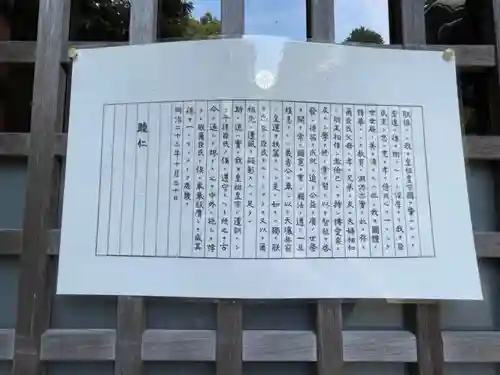 朕惟フニ我カ皇祖皇宗國ヲ肇ムルコト
宏遠ニ德ヲ樹ツルコト深厚ナリ我カ臣
民克ク忠ニ克ク孝ニ億兆心ヲ一ニシテ
世世厥ノ美ヲ濟セルハ此レ我カ國體ノ
精華ニシテ教育ノ淵源亦實ニ此ニ存ス
爾臣民父母ニ孝ニ兄弟ニ友ニ夫婦相和
シ朋友相信シ恭儉己レヲ持シ博愛衆ニ
及ホシ學ヲ修メ業ヲ習ヒ以テ智能ヲ啓
發シ德器ヲ成就シ進テ公益ヲ廣メ世務
ヲ開キ常ニ國憲ヲ重シ國法ニ遵ヒ一旦
緩急アレハ義勇公ニ奉シ以テ天壤無窮
ノ皇運ヲ扶翼スヘシ是ノ如キハ獨リ朕
カ忠良ノ臣民タルノミナラス又以テ爾
祖先ノ遺風ヲ顯彰スルニ足ラン
斯ノ道ハ實ニ我カ皇祖皇宗ノ遺訓ニシ
テ子孫臣民ノ俱ニ遵守スヘキ所之ヲ古
今ニ通シテ謬ラス之ヲ中外ニ施シテ悖
ラス朕爾臣民ト俱ニ拳拳服膺シテ咸其
德ヲ一ニセンコトヲ庶幾フ
明治二十三年十月三十日
睦仁